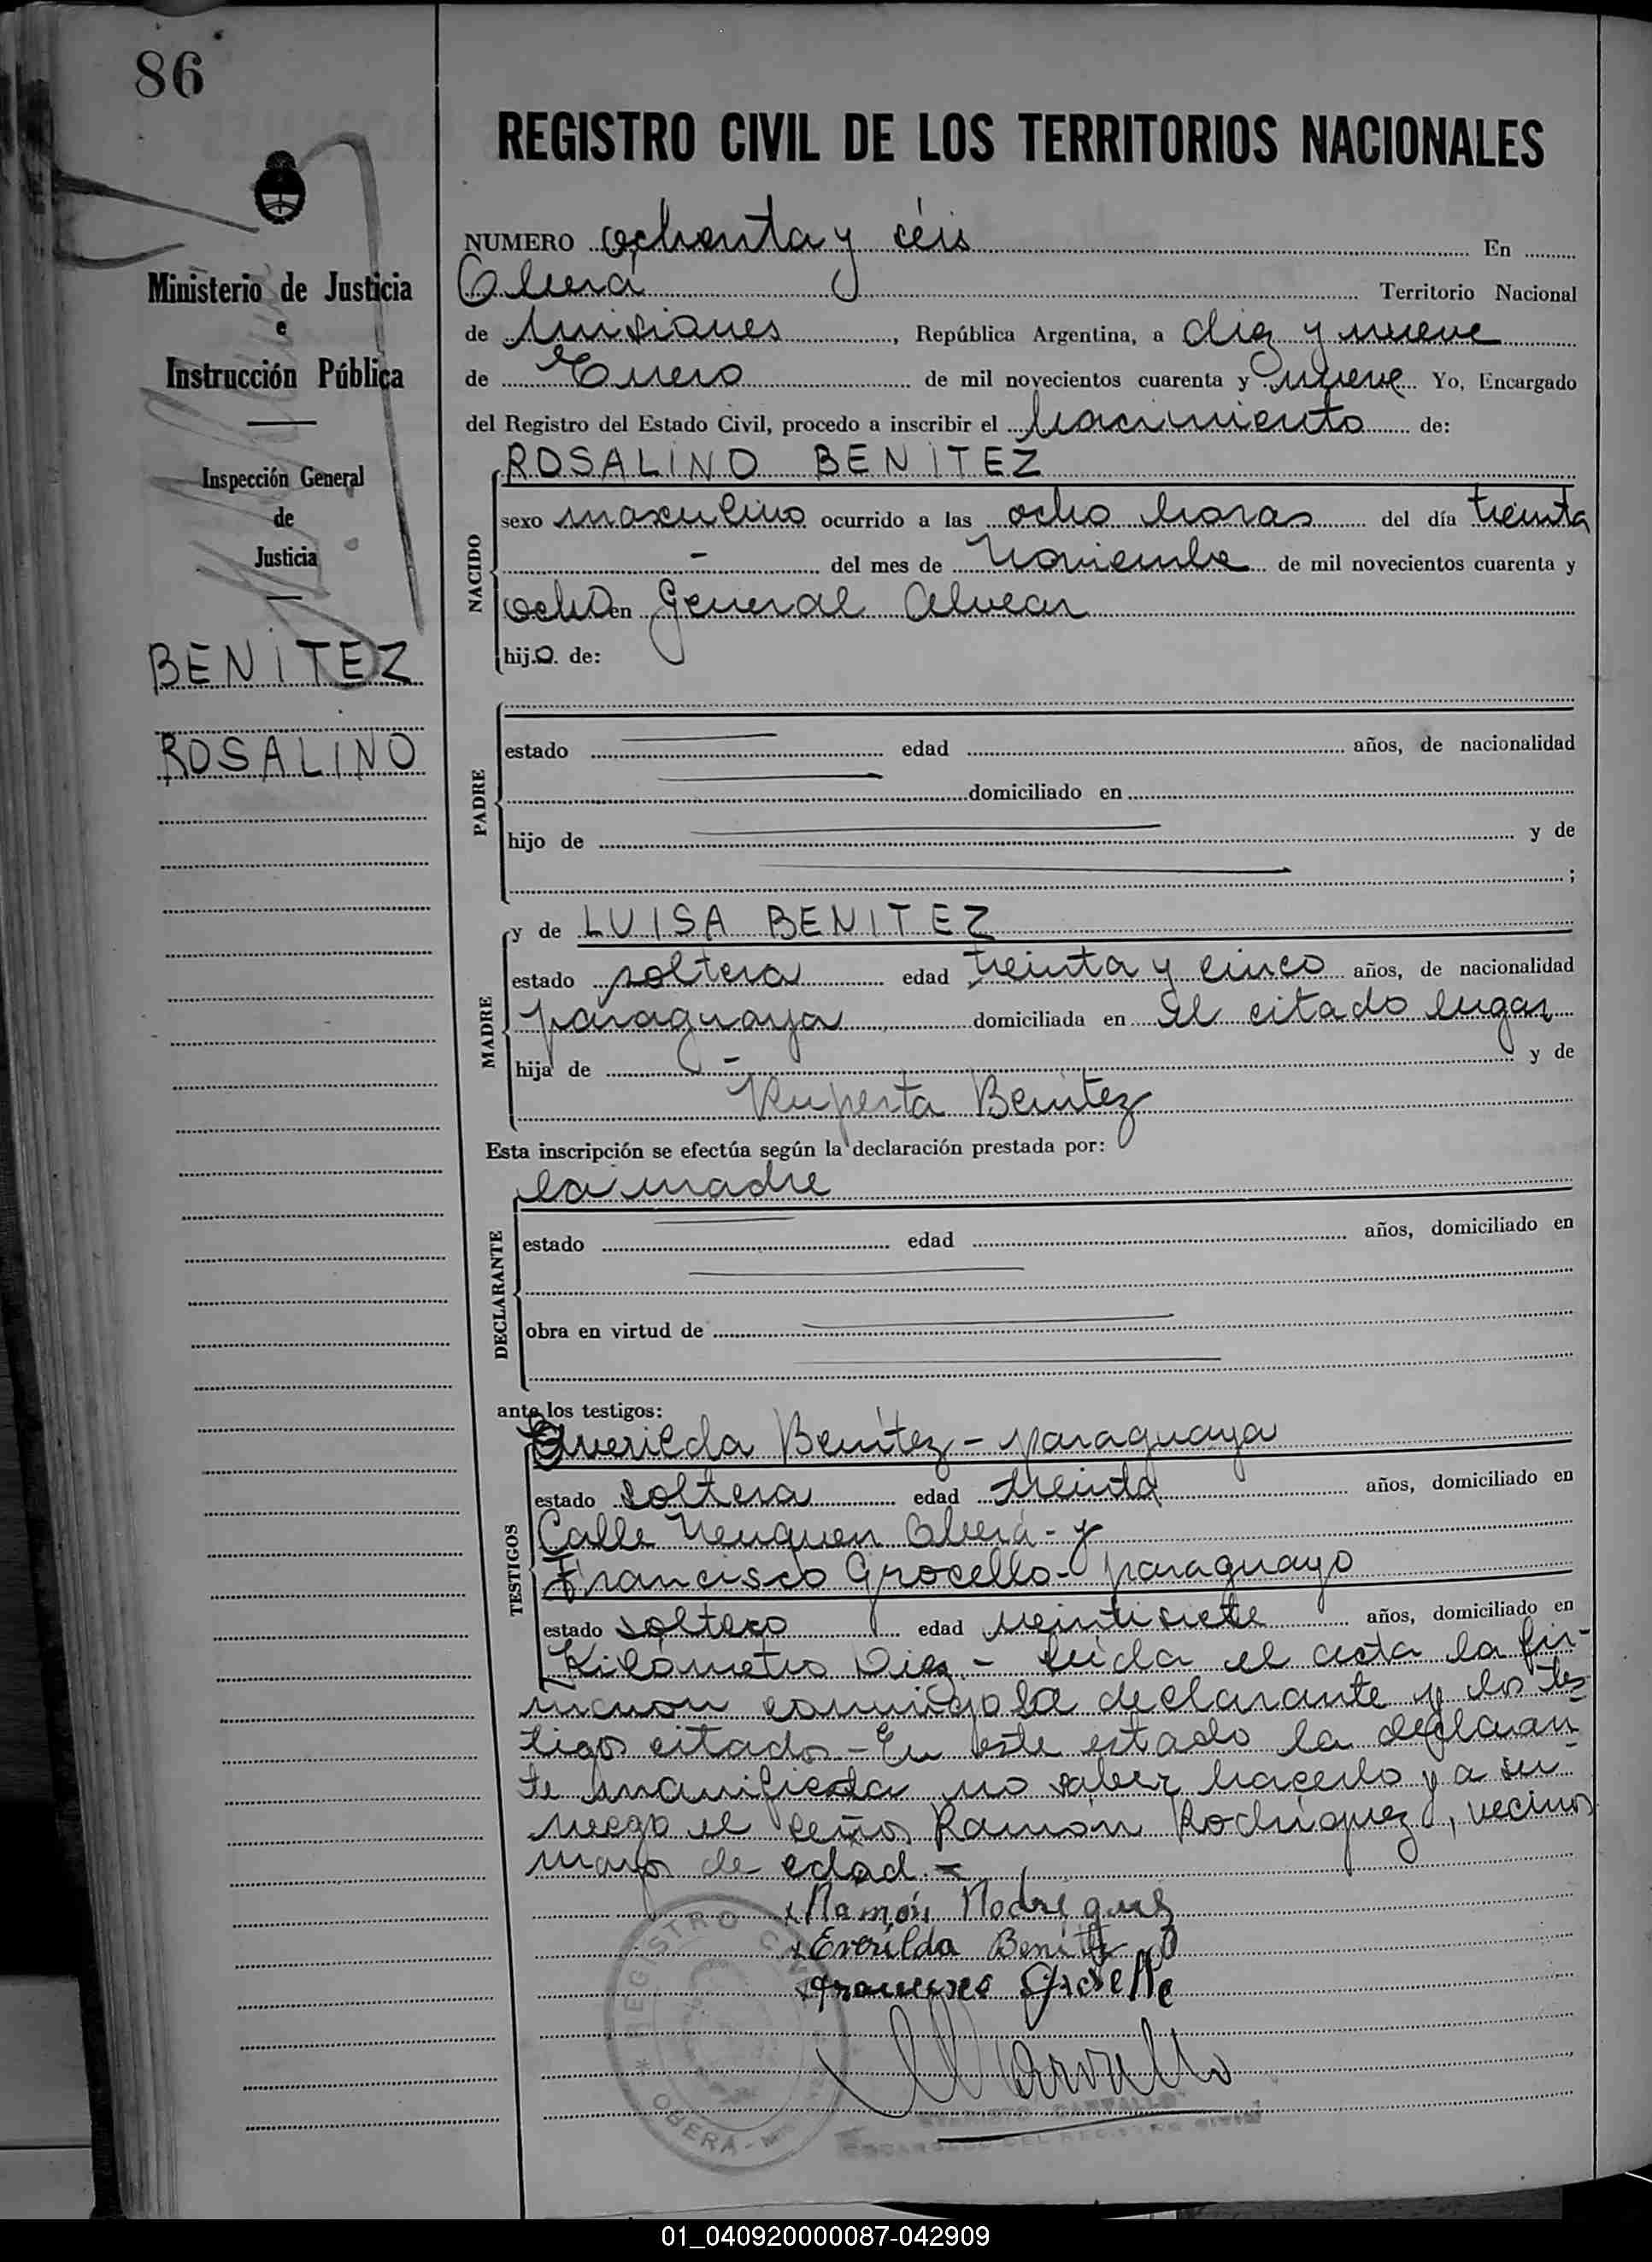 86
REGISTRO CIVIL DE LOS TERRITORIOS NACIONALES
NUMERO ochenta y séis En
Oberá Territorio Nacional
de Misiones, República Argentina, a diez y nueve
de Enero de mil novecientos cuarenta y nueve Yo, Encargado
del Registro del Estado Civil, procedo a inscribir el Nacimiento de:
Ministerio de Justicia
e
Instrucción Pública
Inspección General
de
Justicia
BENITEZ
ROSALINO
NACIDO
ROSALINO BENITEZ
sexo masculino ocurrido a las ocho horas del día treinta
- del mes de Noviembre de mil novecientos cuarenta y
ocho en General Alvear
hijo de:
PADRE
estado edad años, de nacionalidad
domiciliado en
hijo de y de
;
MADRE
y de LUISA BENITEZ
estado soltera edad treinta y cinco años, de nacionalidad
paraguaya domiciliada en el citado lugar
hija de - y de
Ruperta Benítez
Esta inscripción se efectúa según la declaración prestada por:
DECLARANTE
la madre
estado edad años, domiciliado en
obra en virtud de
ante los testigos:
TESTIGOS
Everilda Benítez - paraguaya
estado soltera edad treinta años, domiciliado en
Calle Neuquen Oberá - y
Francisco Grocello - paraguayo
estado soltero edad veintisiete años, domiciliado en
Kilómetro Diez - Leida el acta la fir-
maron conmigo la declarante y los tes-
tigos citados - En este estado la declaran-
te manifiesta no saber hacerlo y a su
ruego el señor Ramón Rodríguez, vecino
mayor de edad. =
Ramón Rodriguez
Everilda Benítez
REGISTRO CIVIL
OBERÁ - MIS
CARVALLO
ENCARGADO DEL REGISTRO CIVIL
01_040920000087-042909